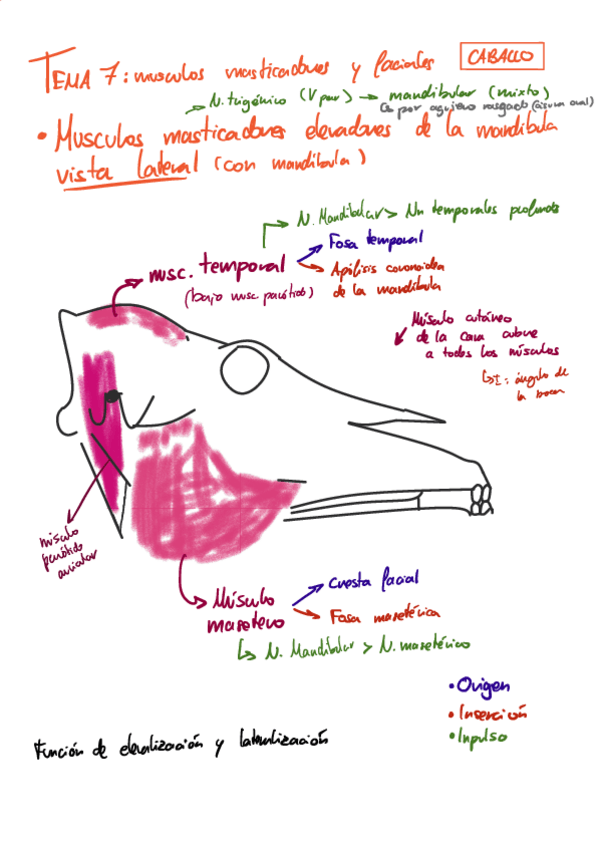 TEMA 7: musculos masticadores y faciales CABALLO
N. trigémino (V par) → mandibular (mixto)
↳ por agujero rasgado (fisura oval)
• Musculos masticadores elevadores de la mandibula
vista lateral (con mandibula)
N. Mandibular > Nn temporales profundos
musc. temporal
Fosa temporal
(bajo musc parótido)
Apófisis coronoidea
de la mandibula
Músculo cutáneo
de la cara cubre
a todos los músculos
↳ I: ángulo de
la boca
músculo
parótido
auricular
Músculo
masetero
Cresta facial
Fosa masetérica
↳ N. Mandibular > N. masetérico
• Origen
• Inserción
• Inpulso
Función de elevalización y lateralización